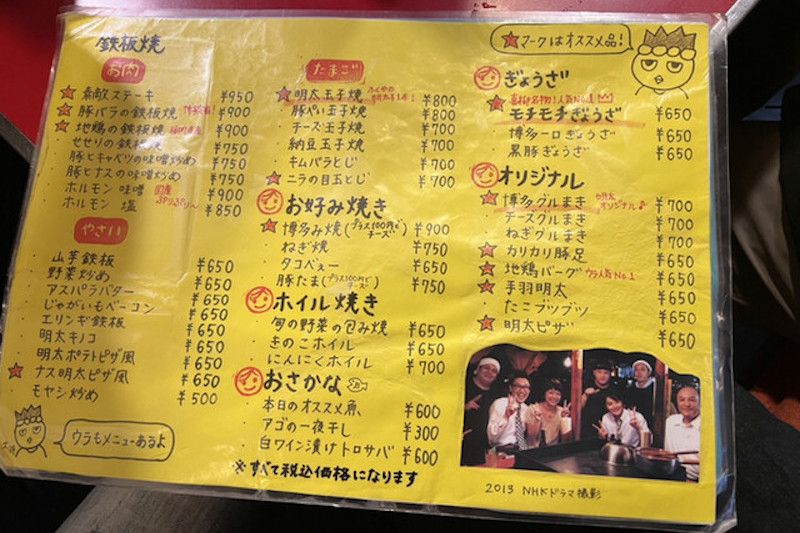 鉄板焼
お肉
★ 素敵ステーキ ¥950
★ 豚バラの鉄板焼 ¥900
★ 地鶏の鉄板焼 ¥900
せせりの鉄板焼 ¥750
豚とキャベツの味噌炒め ¥750
豚とナスの味噌炒め ¥750
ホルモン 味噌 ¥900
ホルモン 塩 ¥850
国産 ぷりぷり〜
やさい
山芋鉄板 ¥650
野菜炒め ¥650
アスパラバター ¥650
じゃがいもベーコン ¥650
エリンギ鉄板 ¥650
明太キノコ ¥650
明太ポテトピザ風 ¥650
★ ナス明太ピザ風 ¥650
モヤシ炒め ¥500
ウラもメニューあるよ
たまご
★ 明太玉子焼 ¥800
豚ぺい玉子焼 ¥800
チーズ玉子焼 ¥700
納豆玉子焼 ¥700
キムバラとじ ¥700
★ ニラの目玉とじ ¥700
お好み焼き
★ 博多み焼(プラス100円でチーズ) ¥900
ねぎ焼 ¥750
タコべぇー ¥650
豚たま(プラス100円でチーズ) ¥750
ホイル焼き
旬の野菜の包み焼 ¥650
きのこホイル ¥650
にんにくホイル ¥700
おさかな
本日のオススメ魚 ¥600
アゴの一夜干し ¥300
白ワイン漬けトロサバ ¥600
※すべて税込価格になります
★マークはオススメ品!
ぎょうざ
人気No.1
★ モチモチぎょうざ ¥650
博多一口ぎょうざ ¥650
黒豚ぎょうざ ¥650
オリジナル
★ 博多グルまき 明太オリジナル♪ ¥700
チーズグルまき ¥700
ねぎグルまき ¥700
★ カリカリ豚足 ¥650
★ 地鶏バーグ ウラ人気No.1 ¥650
★ 手羽明太 ¥650
たこブツブツ ¥650
★ 明太ピザ ¥650
2013 NHKドラマ撮影